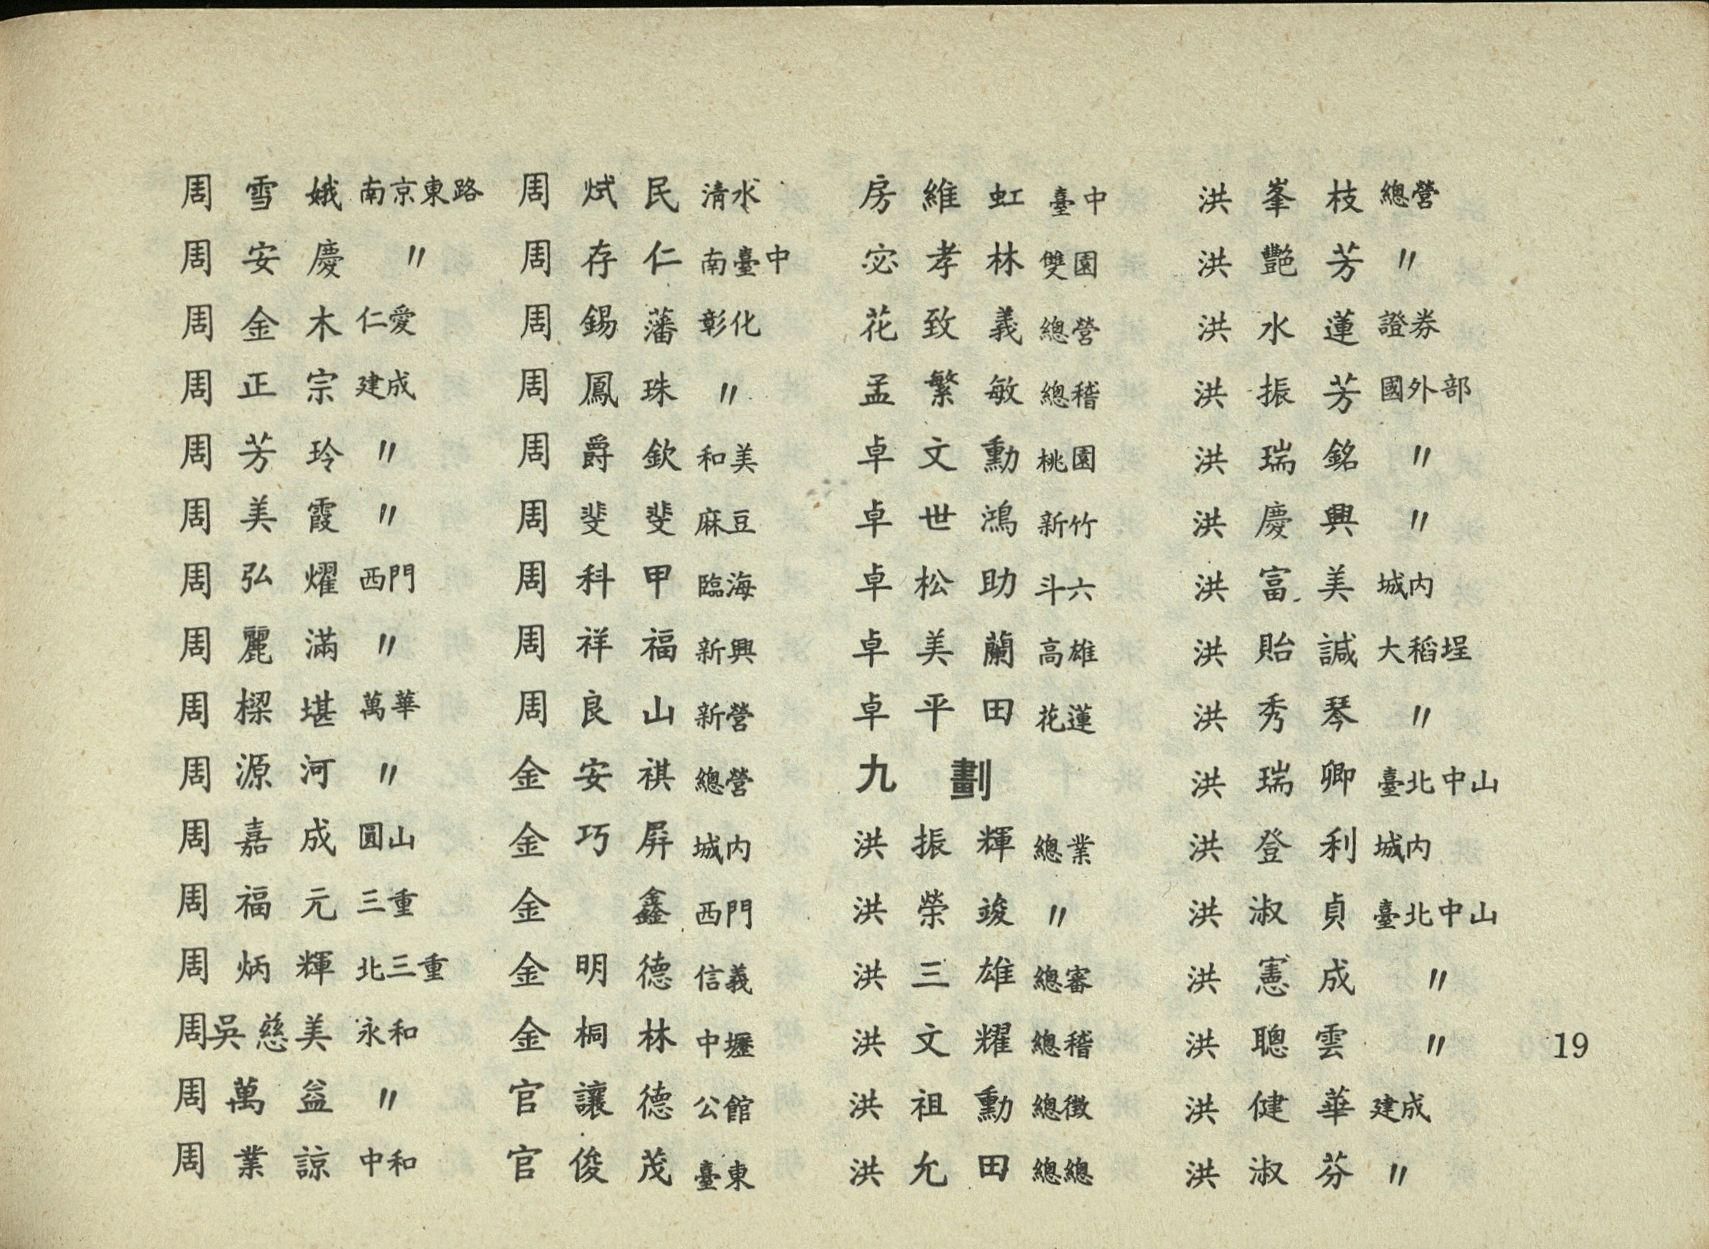 周雪娥 南京東路
周安慶 〃
周金木 仁愛
周正宗 建成
周芳玲 〃
周美霞 〃
周弘燿 西門
周麗滿 〃
周樑堪 萬華
周源河 〃
周嘉成 圓山
周福元 三重
周炳輝 北三重
周吳慈美 永和
周萬益 〃
周業諒 中和
周烒民 清水
周存仁 南臺中
周錫藩 彰化
周鳳珠 〃
周爵欽 和美
周斐斐 麻豆
周科甲 臨海
周祥福 新興
周良山 新營
金安祺 總營
金巧屏 城內
金鑫 西門
金明德 信義
金桐林 中壢
官讓德 公館
官俊茂 臺東
房維虹 臺中
宓孝林 雙園
花致義 總營
孟繁敏 總稽
卓文勳 桃園
卓世鴻 新竹
卓松助 斗六
卓美蘭 高雄
卓平田 花蓮
九劃
洪振輝 總業
洪榮竣 〃
洪三雄 總審
洪文耀 總稽
洪祖勳 總徵
洪允田 總總
洪峯枝 總營
洪艷芳 〃
洪水蓮 證券
洪振芳 國外部
洪瑞銘 〃
洪慶興 〃
洪富美 城內
洪貽誠 大稻埕
洪秀琴 〃
洪瑞卿 臺北中山
洪登利 城內
洪淑貞 臺北中山
洪憲成 〃
洪聰雲 〃
洪健華 建成
洪淑芬 〃
19